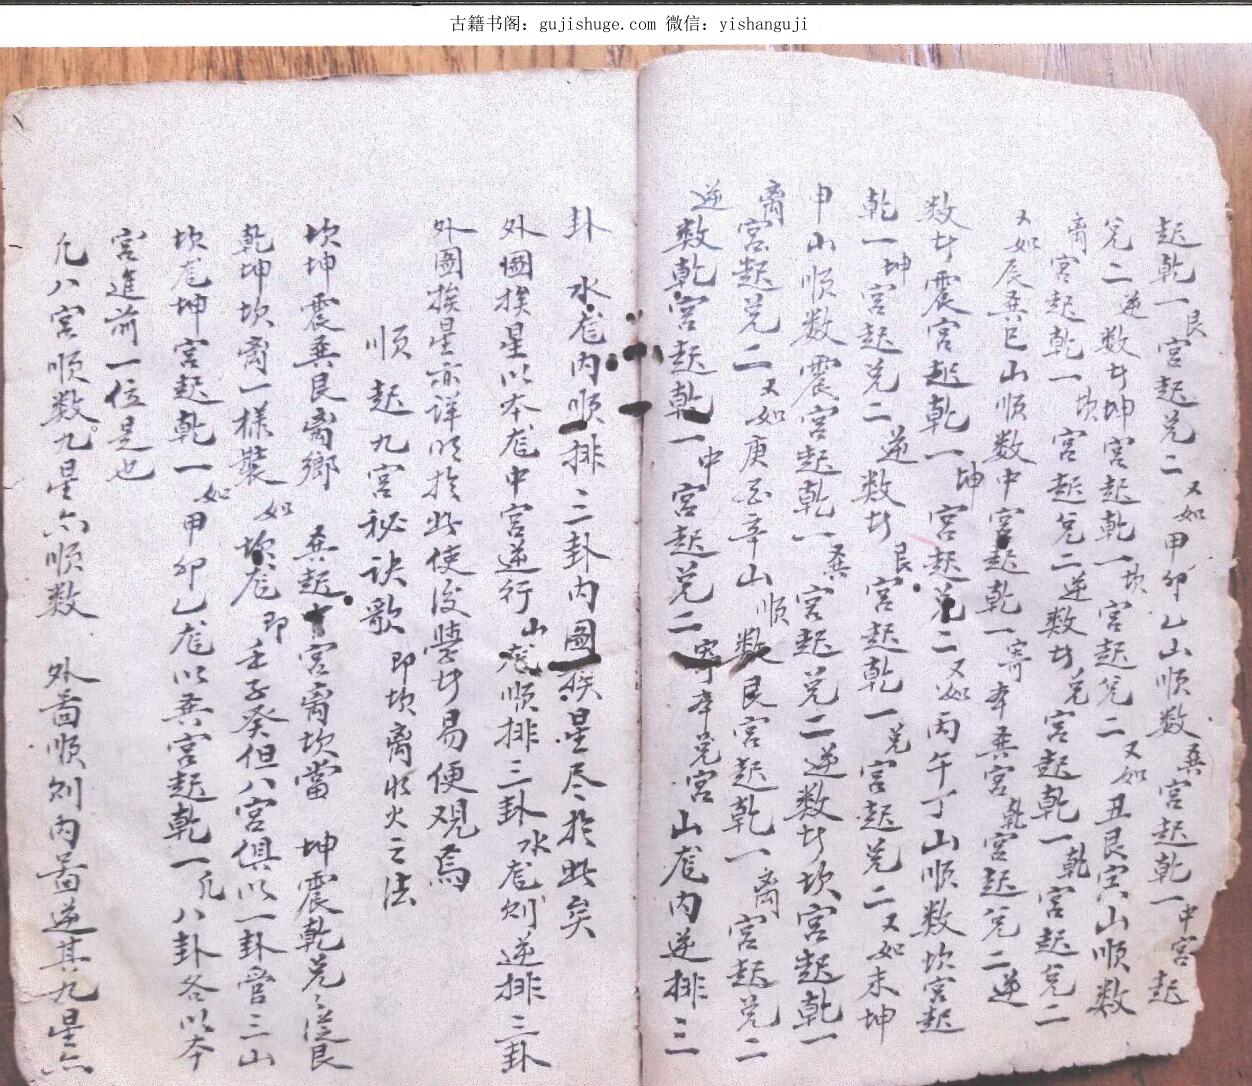 古籍书阁：gujishuge.com 微信：yishanguji
起乾一艮宫起兑二又如甲卯乙山順数巽宫起乾一中宫起
兑二逆数其坤宫起乾一坎宫起兑二又如丑艮山順数
离宫起乾一坎宫起兑二逆数其兑宫起乾一乾宫起兑二
又如辰巽巳山順数中宫起乾一寄本巽宫乾宫起兑二逆
数其震宫起乾一坤宫起兑二又如丙午丁山順数坎宫起
乾一坤宫起兑二逆数其艮宫起乾一兑宫起兑二又如未坤
申山順数震宫起乾一巽宫起兑二逆数其坎宫起乾一
离宫起兑二又如庚酉辛山順数艮宫起乾一离宫起兑二
逆数乾宫起乾一中宫起兑二寄本兑宫山龙内逆排三
卦 水龙内順排三卦内圖挨星尽於此矣
外圖挨星以本龙中宫逆行山龙順排三卦水龙则逆排三卦
外圖挨星亦详明於此使後學其易便观焉
順起九宫秘诀歌 即坎离水火之法
坎坤震巽艮离鄉 巽起中宫离坎當 坤震乾兑 艮
乾坤坎离一樣装如坎龙即壬子癸但八宫俱以一卦管三山
坎龙坤宫起乾一如甲卯乙龙以巽宫起乾一凡八卦各以本
宫進前一位是也
凡八宫順数九星六順数 外啚順则内啚逆其九星六